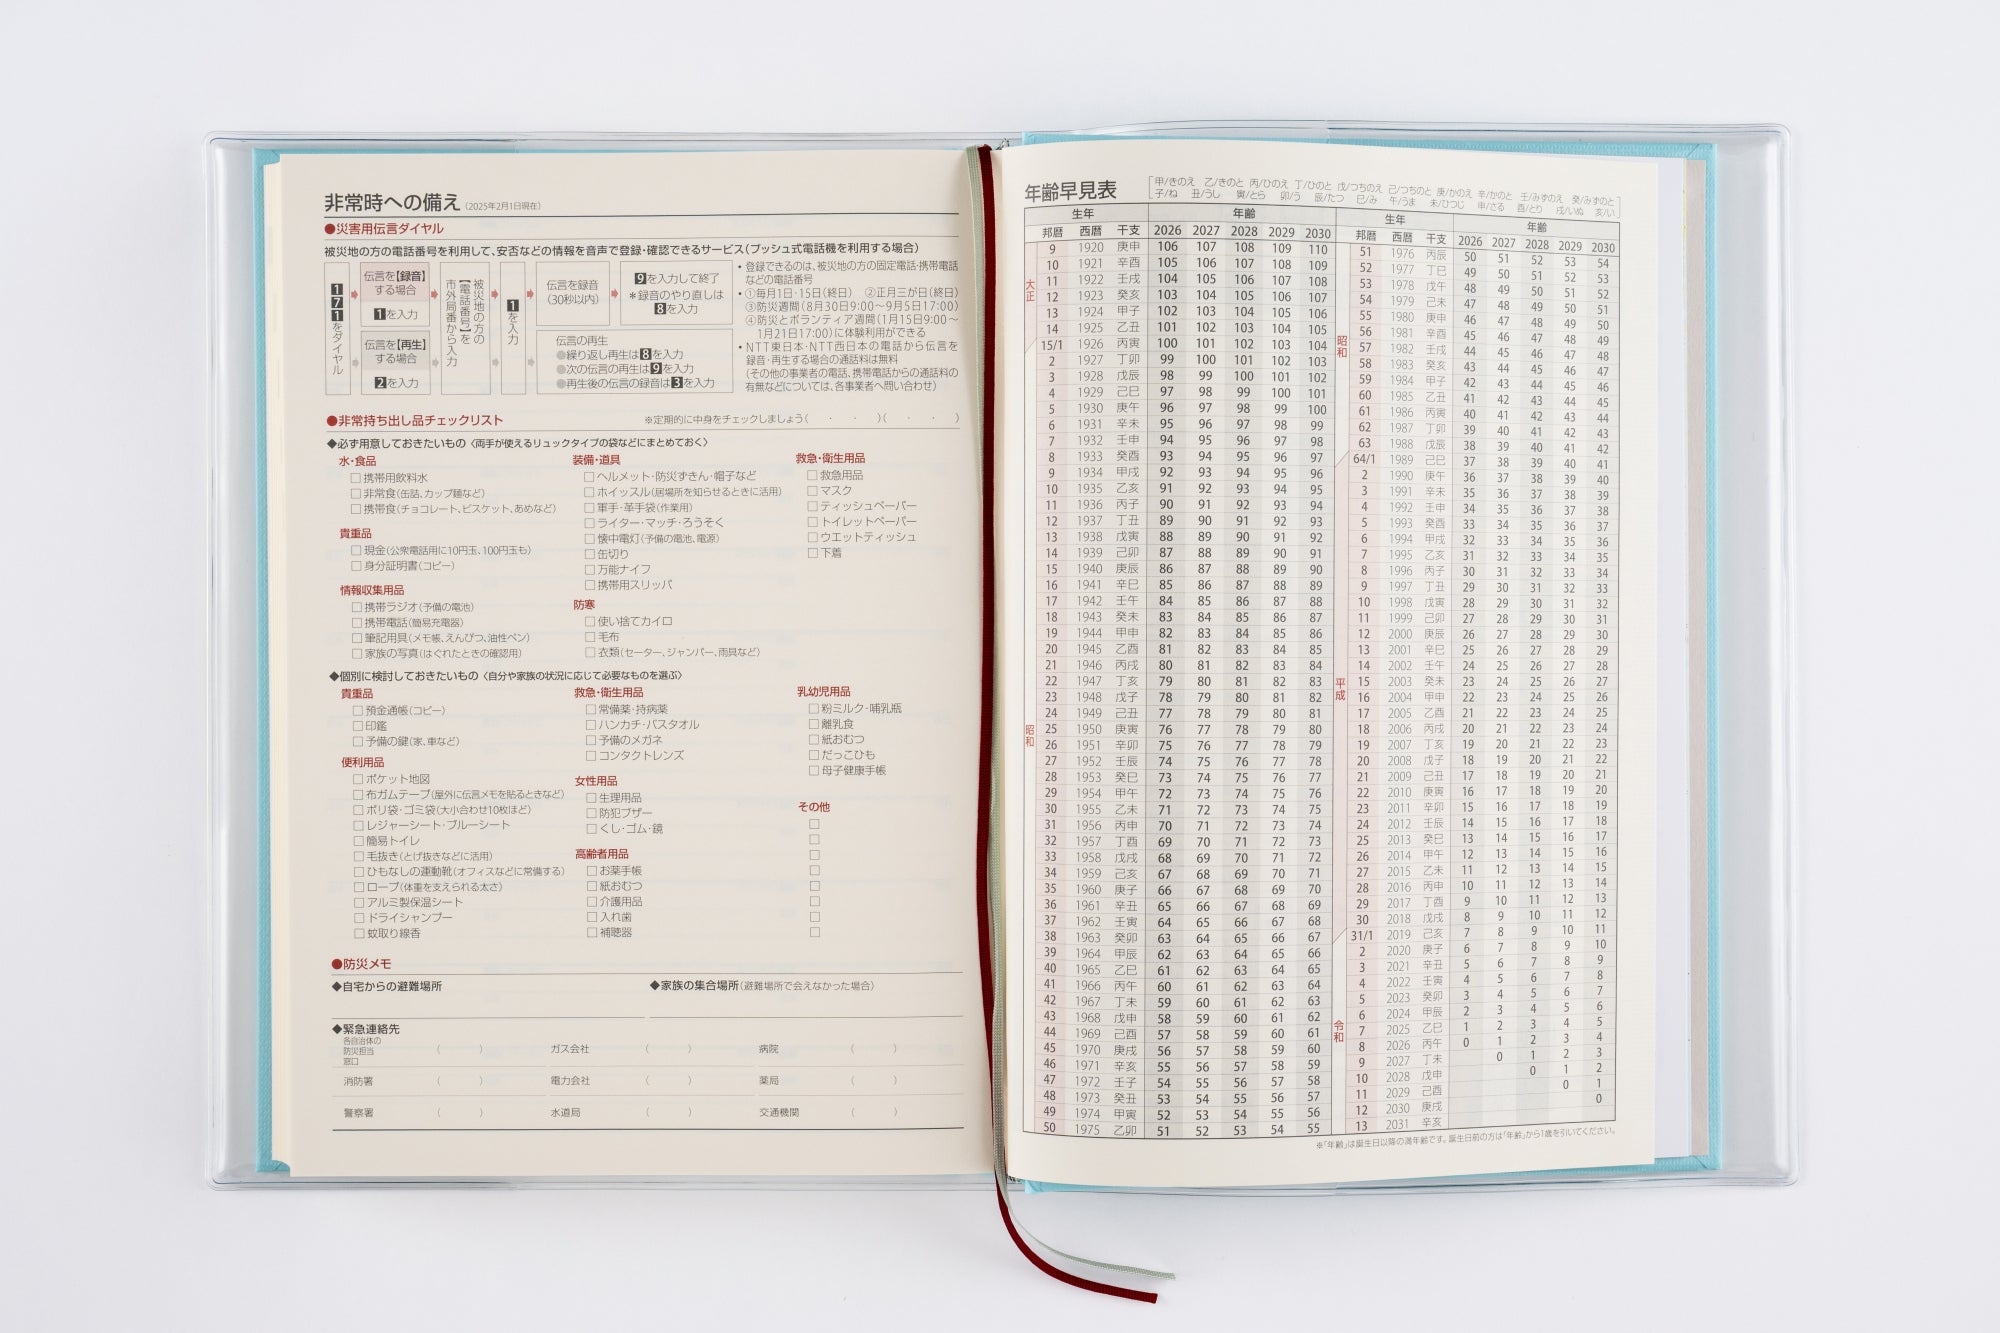 非常時への備え (2025年2月1日現在)
●災害用伝言ダイヤル
被災地の方の電話番号を利用して、安否などの情報を音声で登録・確認できるサービス(プッシュ式電話機を利用する場合)
171をダイヤル
伝言を【録音】
する場合
1を入力
伝言を【再生】
する場合
2を入力
被災地の方の
【電話番号】を
市外局番から入力
1を入力
伝言を録音
(30秒以内)
9を入力して終了
*録音のやり直しは
8を入力
伝言の再生
●繰り返し再生は8を入力
●次の伝言の再生は9を入力
●再生後の伝言の録音は3を入力
・登録できるのは、被災地の方の固定電話・携帯電話
などの電話番号
・①毎月1日・15日(終日) ②正月三が日(終日)
③防災週間(8月30日9:00〜9月5日17:00)
④防災とボランティア週間(1月15日9:00〜
1月21日17:00)に体験利用ができる
・NTT東日本・NTT西日本の電話から伝言を
録音・再生する場合の通話料は無料
(その他の事業者の電話、携帯電話からの通話料の
有無などについては、各事業者へ問い合わせ)
●非常持ち出し品チェックリスト ※定期的に中身をチェックしましょう( ・ ・ )( ・ ・ )
◆必ず用意しておきたいもの〈両手が使えるリュックタイプの袋などにまとめておく〉
水・食品
□携帯用飲料水
□非常食(缶詰、カップ麺など)
□携帯食(チョコレート、ビスケット、あめなど)
貴重品
□現金(公衆電話用に10円玉、100円玉も)
□身分証明書(コピー)
情報収集用品
□携帯ラジオ(予備の電池)
□携帯電話(簡易充電器)
□筆記用具(メモ帳、えんぴつ、油性ペン)
□家族の写真(はぐれたときの確認用)
装備・道具
□ヘルメット・防災ずきん・帽子など
□ホイッスル(居場所を知らせるときに活用)
□軍手・革手袋(作業用)
□ライター・マッチ・ろうそく
□懐中電灯(予備の電池、電源)
□缶切り
□万能ナイフ
□携帯用スリッパ
防寒
□使い捨てカイロ
□毛布
□衣類(セーター、ジャンパー、雨具など)
救急・衛生用品
□救急用品
□マスク
□ティッシュペーパー
□トイレットペーパー
□ウエットティッシュ
□下着
◆個別に検討しておきたいもの〈自分や家族の状況に応じて必要なものを選ぶ〉
貴重品
□預金通帳(コピー)
□印鑑
□予備の鍵(家、車など)
便利用品
□ポケット地図
□布ガムテープ(屋外に伝言メモを貼るときなど)
□ポリ袋・ゴミ袋(大小合わせ10枚ほど)
□レジャーシート・ブルーシート
□簡易トイレ
□毛抜き(とげ抜きなどに活用)
□ひもなしの運動靴(オフィスなどに常備する)
□ロープ(体重を支えられる太さ)
□アルミ製保温シート
□ドライシャンプー
□蚊取り線香
救急・衛生用品
□常備薬・持病薬
□ハンカチ・バスタオル
□予備のメガネ
□コンタクトレンズ
女性用品
□生理用品
□防犯ブザー
□くし・ゴム・鏡
高齢者用品
□お薬手帳
□紙おむつ
□介護用品
□入れ歯
□補聴器
乳幼児用品
□粉ミルク・哺乳瓶
□離乳食
□紙おむつ
□だっこひも
□母子健康手帳
その他
□
□
□
□
□
□
□
□
●防災メモ
◆自宅からの避難場所 ◆家族の集合場所(避難場所で会えなかった場合)
◆緊急連絡先
各自治体の
防災担当
窓口 ( ) ガス会社 ( ) 病院 ( )
消防署 ( ) 電力会社 ( ) 薬局 ( )
警察署 ( ) 水道局 ( ) 交通機関 ( )
年齢早見表
甲/きのえ 乙/きのと 丙/ひのえ 丁/ひのと 戊/つちのえ 己/つちのと 庚/かのえ 辛/かのと 壬/みずのえ 癸/みずのと
子/ね 丑/うし 寅/とら 卯/う 辰/たつ 巳/み 午/うま 未/ひつじ 申/さる 酉/とり 戌/いぬ 亥/い
生年 年齢
邦暦 西暦 干支 2026 2027 2028 2029 2030
大正
9 1920 庚申 106 107 108 109 110
10 1921 辛酉 105 106 107 108 109
11 1922 壬戌 104 105 106 107 108
12 1923 癸亥 103 104 105 106 107
13 1924 甲子 102 103 104 105 106
14 1925 乙丑 101 102 103 104 105
15/1 1926 丙寅 100 101 102 103 104
昭和
2 1927 丁卯 99 100 101 102 103
3 1928 戊辰 98 99 100 101 102
4 1929 己巳 97 98 99 100 101
5 1930 庚午 96 97 98 99 100
6 1931 辛未 95 96 97 98 99
7 1932 壬申 94 95 96 97 98
8 1933 癸酉 93 94 95 96 97
9 1934 甲戌 92 93 94 95 96
10 1935 乙亥 91 92 93 94 95
11 1936 丙子 90 91 92 93 94
12 1937 丁丑 89 90 91 92 93
13 1938 戊寅 88 89 90 91 92
14 1939 己卯 87 88 89 90 91
15 1940 庚辰 86 87 88 89 90
16 1941 辛巳 85 86 87 88 89
17 1942 壬午 84 85 86 87 88
18 1943 癸未 83 84 85 86 87
19 1944 甲申 82 83 84 85 86
20 1945 乙酉 81 82 83 84 85
21 1946 丙戌 80 81 82 83 84
22 1947 丁亥 79 80 81 82 83
23 1948 戊子 78 79 80 81 82
24 1949 己丑 77 78 79 80 81
25 1950 庚寅 76 77 78 79 80
26 1951 辛卯 75 76 77 78 79
27 1952 壬辰 74 75 76 77 78
28 1953 癸巳 73 74 75 76 77
29 1954 甲午 72 73 74 75 76
30 1955 乙未 71 72 73 74 75
31 1956 丙申 70 71 72 73 74
32 1957 丁酉 69 70 71 72 73
33 1958 戊戌 68 69 70 71 72
34 1959 己亥 67 68 69 70 71
35 1960 庚子 66 67 68 69 70
36 1961 辛丑 65 66 67 68 69
37 1962 壬寅 64 65 66 67 68
38 1963 癸卯 63 64 65 66 67
39 1964 甲辰 62 63 64 65 66
40 1965 乙巳 61 62 63 64 65
41 1966 丙午 60 61 62 63 64
42 1967 丁未 59 60 61 62 63
43 1968 戊申 58 59 60 61 62
44 1969 己酉 57 58 59 60 61
45 1970 庚戌 56 57 58 59 60
46 1971 辛亥 55 56 57 58 59
47 1972 壬子 54 55 56 57 58
48 1973 癸丑 53 54 55 56 57
49 1974 甲寅 52 53 54 55 56
50 1975 乙卯 51 52 53 54 55
生年 年齢
邦暦 西暦 干支 2026 2027 2028 2029 2030
昭和
51 1976 丙辰 50 51 52 53 54
52 1977 丁巳 49 50 51 52 53
53 1978 戊午 48 49 50 51 52
54 1979 己未 47 48 49 50 51
55 1980 庚申 46 47 48 49 50
56 1981 辛酉 45 46 47 48 49
57 1982 壬戌 44 45 46 47 48
58 1983 癸亥 43 44 45 46 47
59 1984 甲子 42 43 44 45 46
60 1985 乙丑 41 42 43 44 45
61 1986 丙寅 40 41 42 43 44
62 1987 丁卯 39 40 41 42 43
63 1988 戊辰 38 39 40 41 42
64/1 1989 己巳 37 38 39 40 41
平成
2 1990 庚午 36 37 38 39 40
3 1991 辛未 35 36 37 38 39
4 1992 壬申 34 35 36 37 38
5 1993 癸酉 33 34 35 36 37
6 1994 甲戌 32 33 34 35 36
7 1995 乙亥 31 32 33 34 35
8 1996 丙子 30 31 32 33 34
9 1997 丁丑 29 30 31 32 33
10 1998 戊寅 28 29 30 31 32
11 1999 己卯 27 28 29 30 31
12 2000 庚辰 26 27 28 29 30
13 2001 辛巳 25 26 27 28 29
14 2002 壬午 24 25 26 27 28
15 2003 癸未 23 24 25 26 27
16 2004 甲申 22 23 24 25 26
17 2005 乙酉 21 22 23 24 25
18 2006 丙戌 20 21 22 23 24
19 2007 丁亥 19 20 21 22 23
20 2008 戊子 18 19 20 21 22
21 2009 己丑 17 18 19 20 21
22 2010 庚寅 16 17 18 19 20
23 2011 辛卯 15 16 17 18 19
24 2012 壬辰 14 15 16 17 18
25 2013 癸巳 13 14 15 16 17
26 2014 甲午 12 13 14 15 16
27 2015 乙未 11 12 13 14 15
28 2016 丙申 10 11 12 13 14
29 2017 丁酉 9 10 11 12 13
30 2018 戊戌 8 9 10 11 12
31/1 2019 己亥 7 8 9 10 11
令和
2 2020 庚子 6 7 8 9 10
3 2021 辛丑 5 6 7 8 9
4 2022 壬寅 4 5 6 7 8
5 2023 癸卯 3 4 5 6 7
6 2024 甲辰 2 3 4 5 6
7 2025 乙巳 1 2 3 4 5
8 2026 丙午 0 1 2 3 4
9 2027 丁未 0 1 2 3
10 2028 戊申 0 1 2
11 2029 己酉 0 1
12 2030 庚戌 0
13 2031 辛亥
※「年齢」は誕生日以降の満年齢です。誕生日前の方は「年齢」から1歳を引いてください。